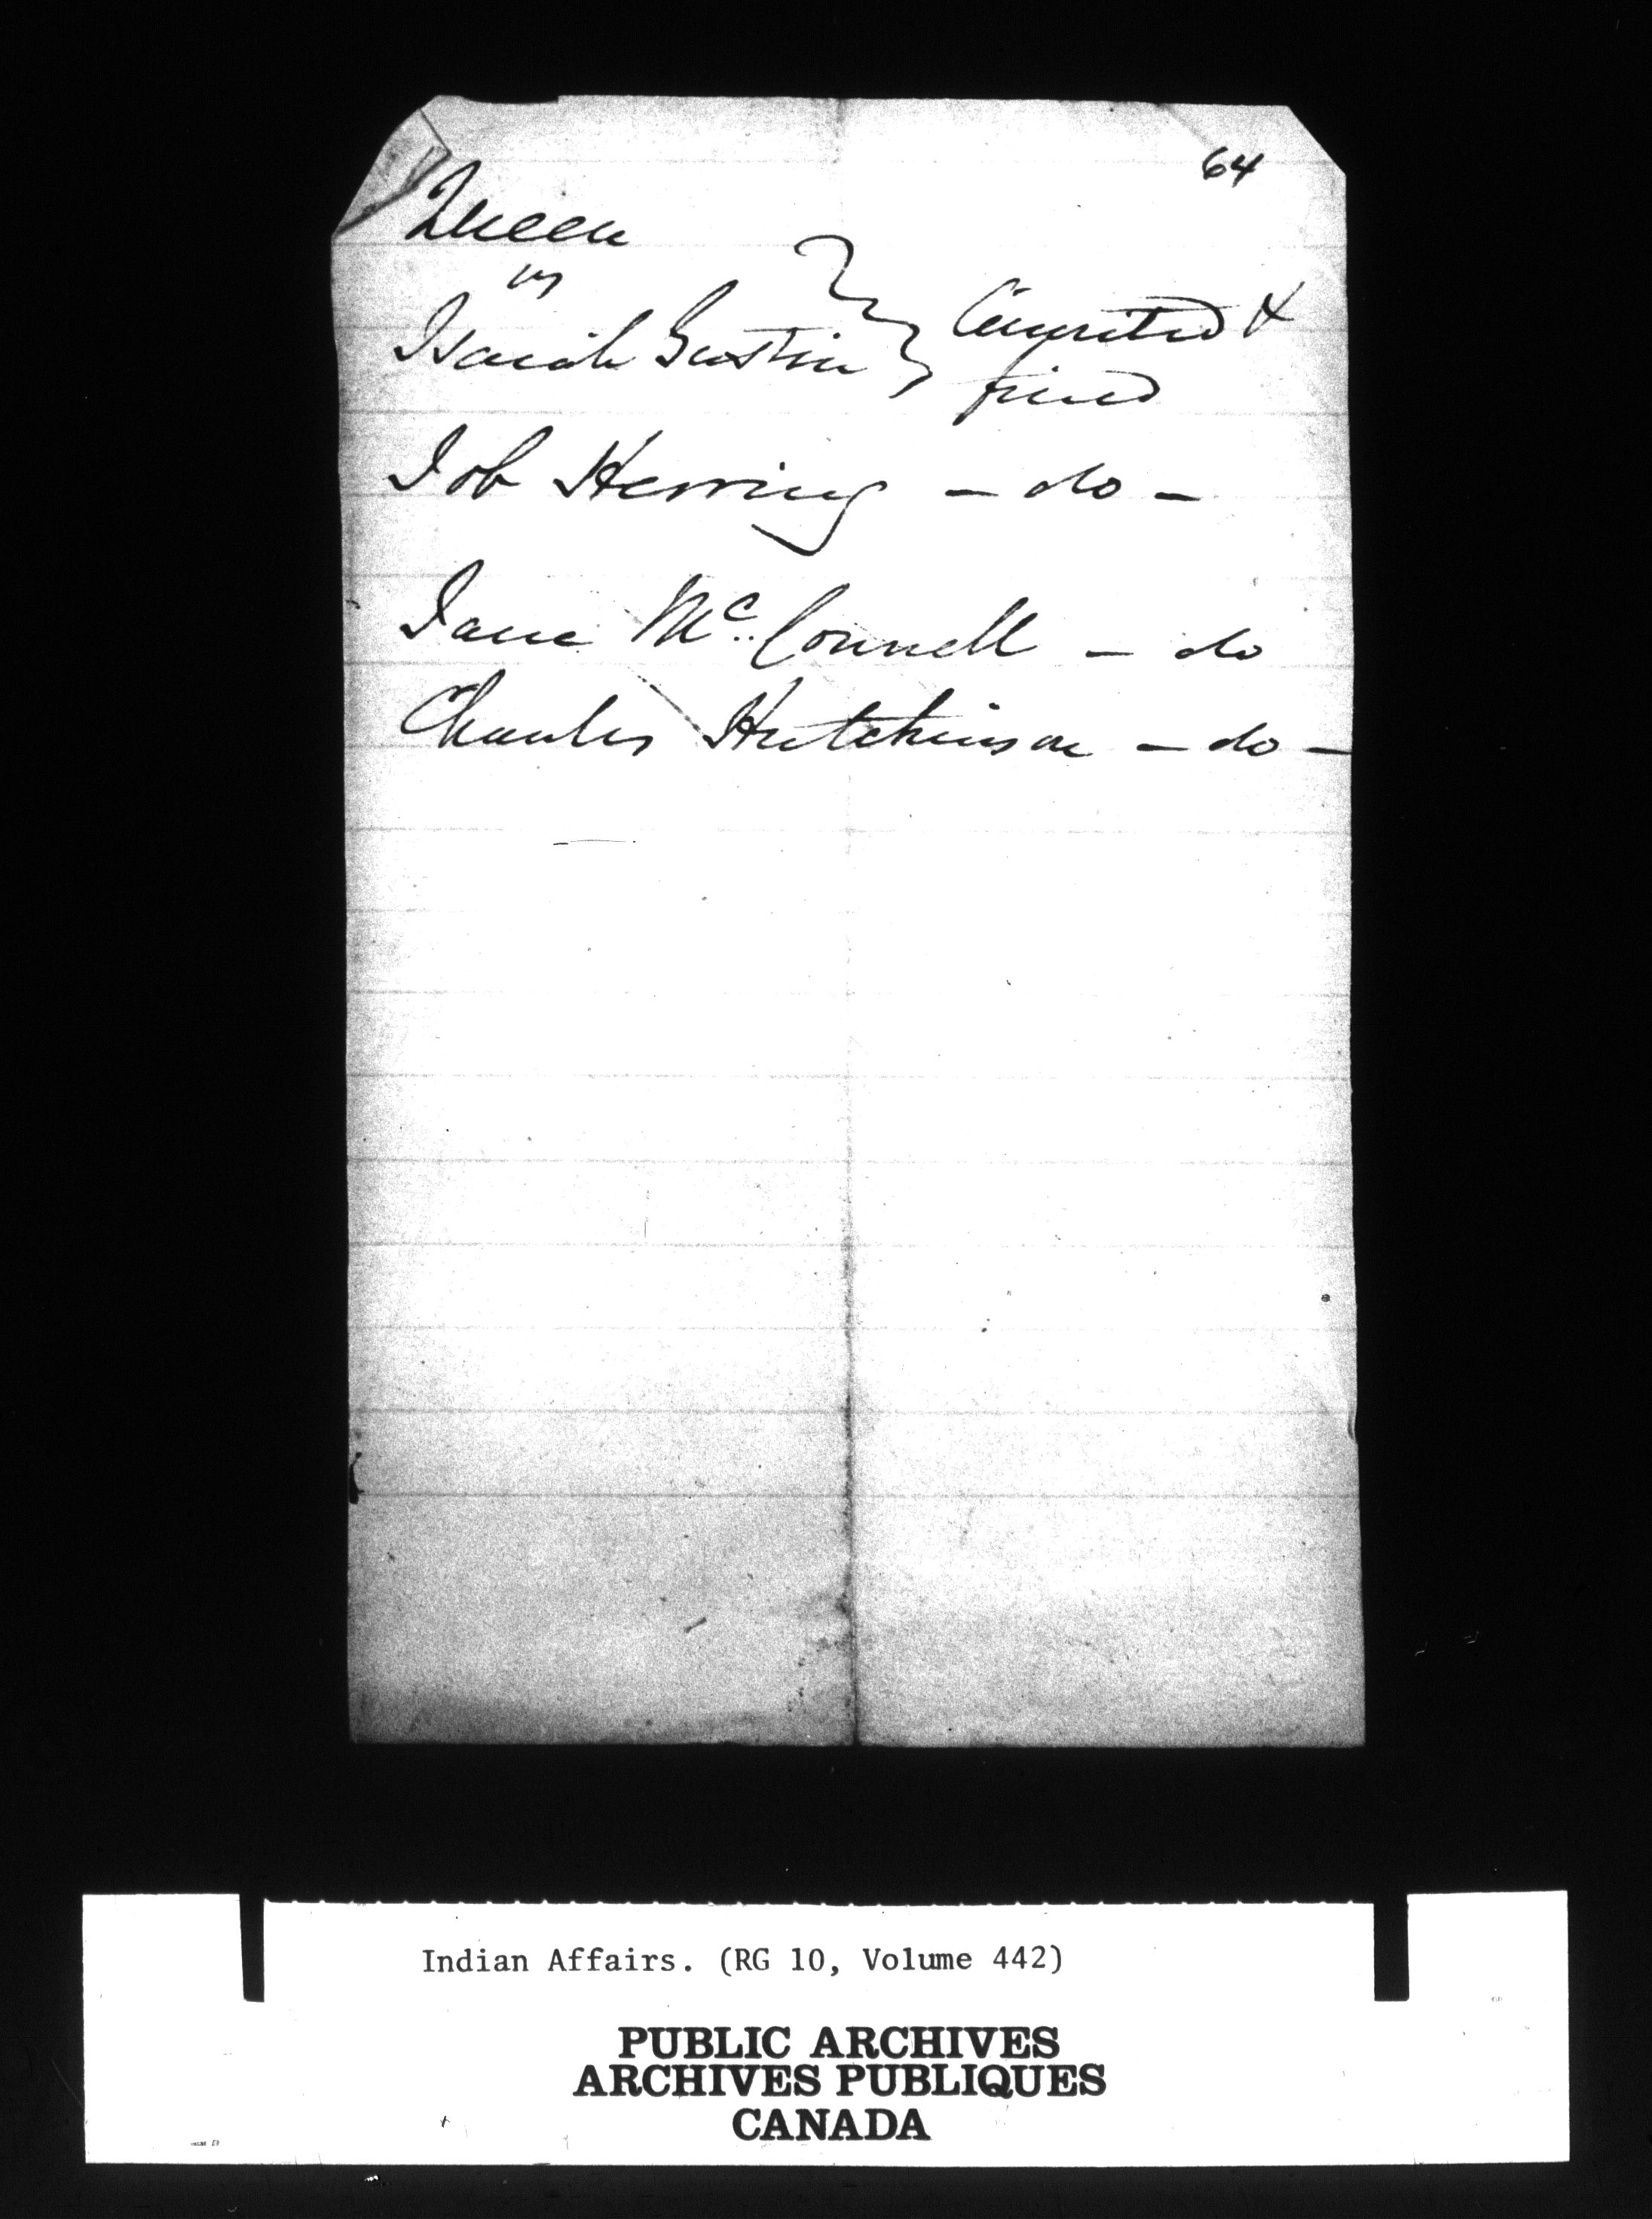 64
Queen
vs
Isaiah Gustin } Convicted &
fined
Job Herring - do -
Jane Mc. Connell - do
Charles Hutchinson - do -
Indian Affairs. (RG 10, Volume 442)
PUBLIC ARCHIVES
ARCHIVES PUBLIQUES
CANADA